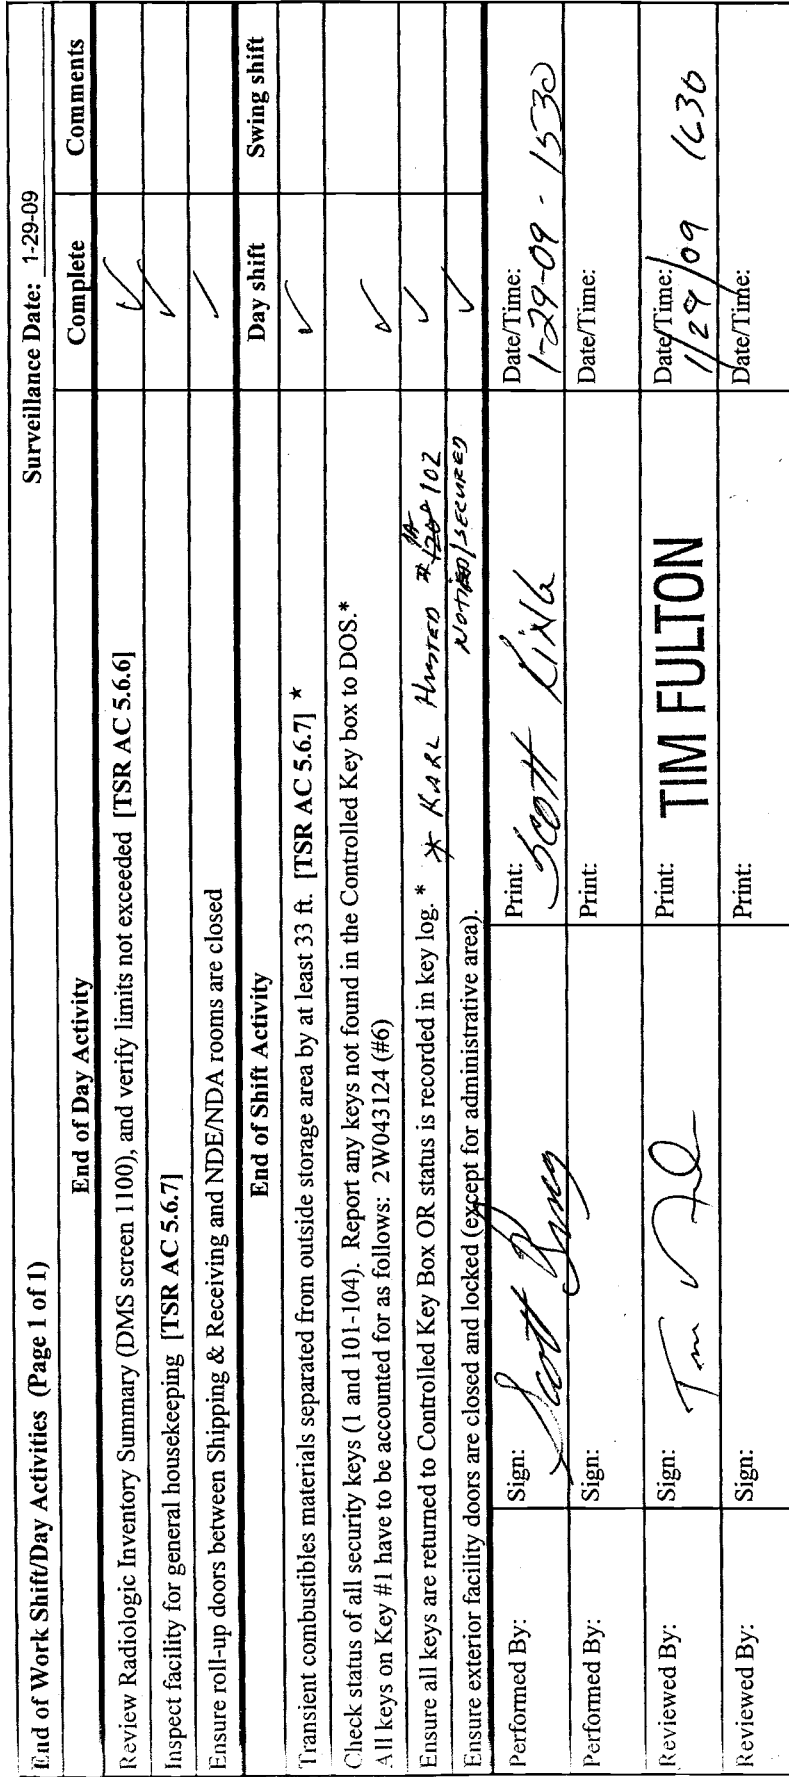 End of Work Shift/Day Activities (Page 1 of 1) Surveillance Date: 1-29-09
End of Day Activity Complete Comments
Review Radiologic Inventory Summary (DMS screen 1100), and verify limits not exceeded [TSR AC 5.6.6] ✓
Inspect facility for general housekeeping [TSR AC 5.6.7] ✓
Ensure roll-up doors between Shipping & Receiving and NDE/NDA rooms are closed ✓
End of Shift Activity Day shift Swing shift
Transient combustibles materials separated from outside storage area by at least 33 ft. [TSR AC 5.6.7] * ✓
Check status of all security keys (1 and 101-104). Report any keys not found in the Controlled Key box to DOS.* ✓
All keys on Key #1 have to be accounted for as follows: 2W043124 (#6)
Ensure all keys are returned to Controlled Key Box OR status is recorded in key log. * * KARL # 102 ✓
Ensure exterior facility doors are closed and locked (except for administrative area). NOTIFIED/SECURED ✓
Performed By: Sign: Scott Print: Scott King Date/Time: 1-29-09 - 1530
Performed By: Sign: Print: Date/Time:
Reviewed By: Sign: Tim Print: TIM FULTON Date/Time: 1/29/09 1630
Reviewed By: Sign: Print: Date/Time: